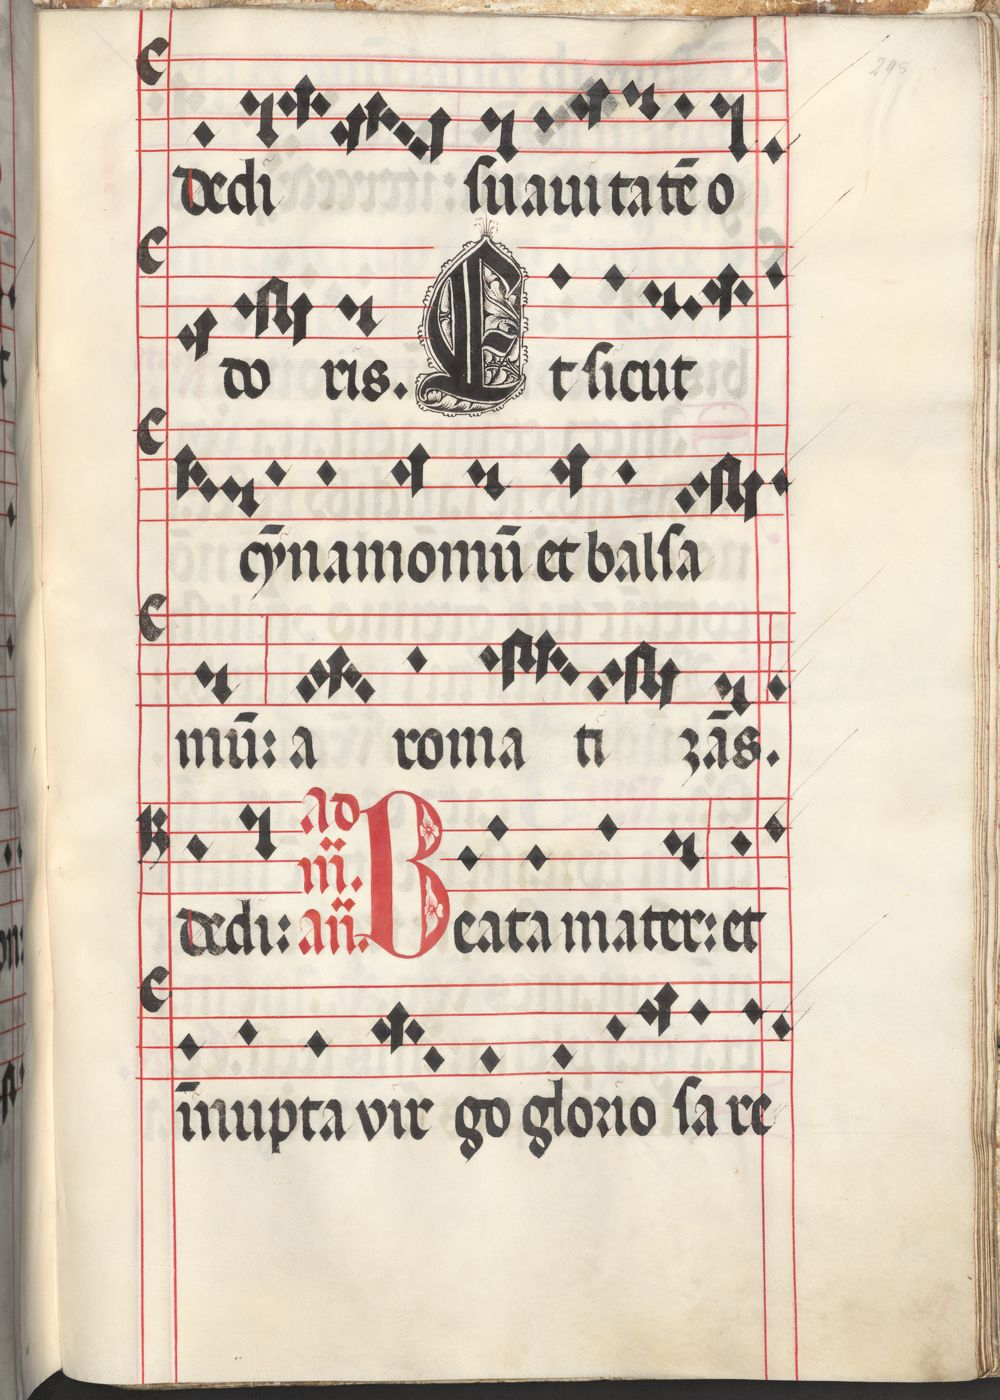 295
dedi suauitatē o
do ris. Et sicut
cȳnamomū et balsa
mū: a roma ti zās.
dedi: ad iii. añ. Beata mater: et
īnupta vir go glorio sa re